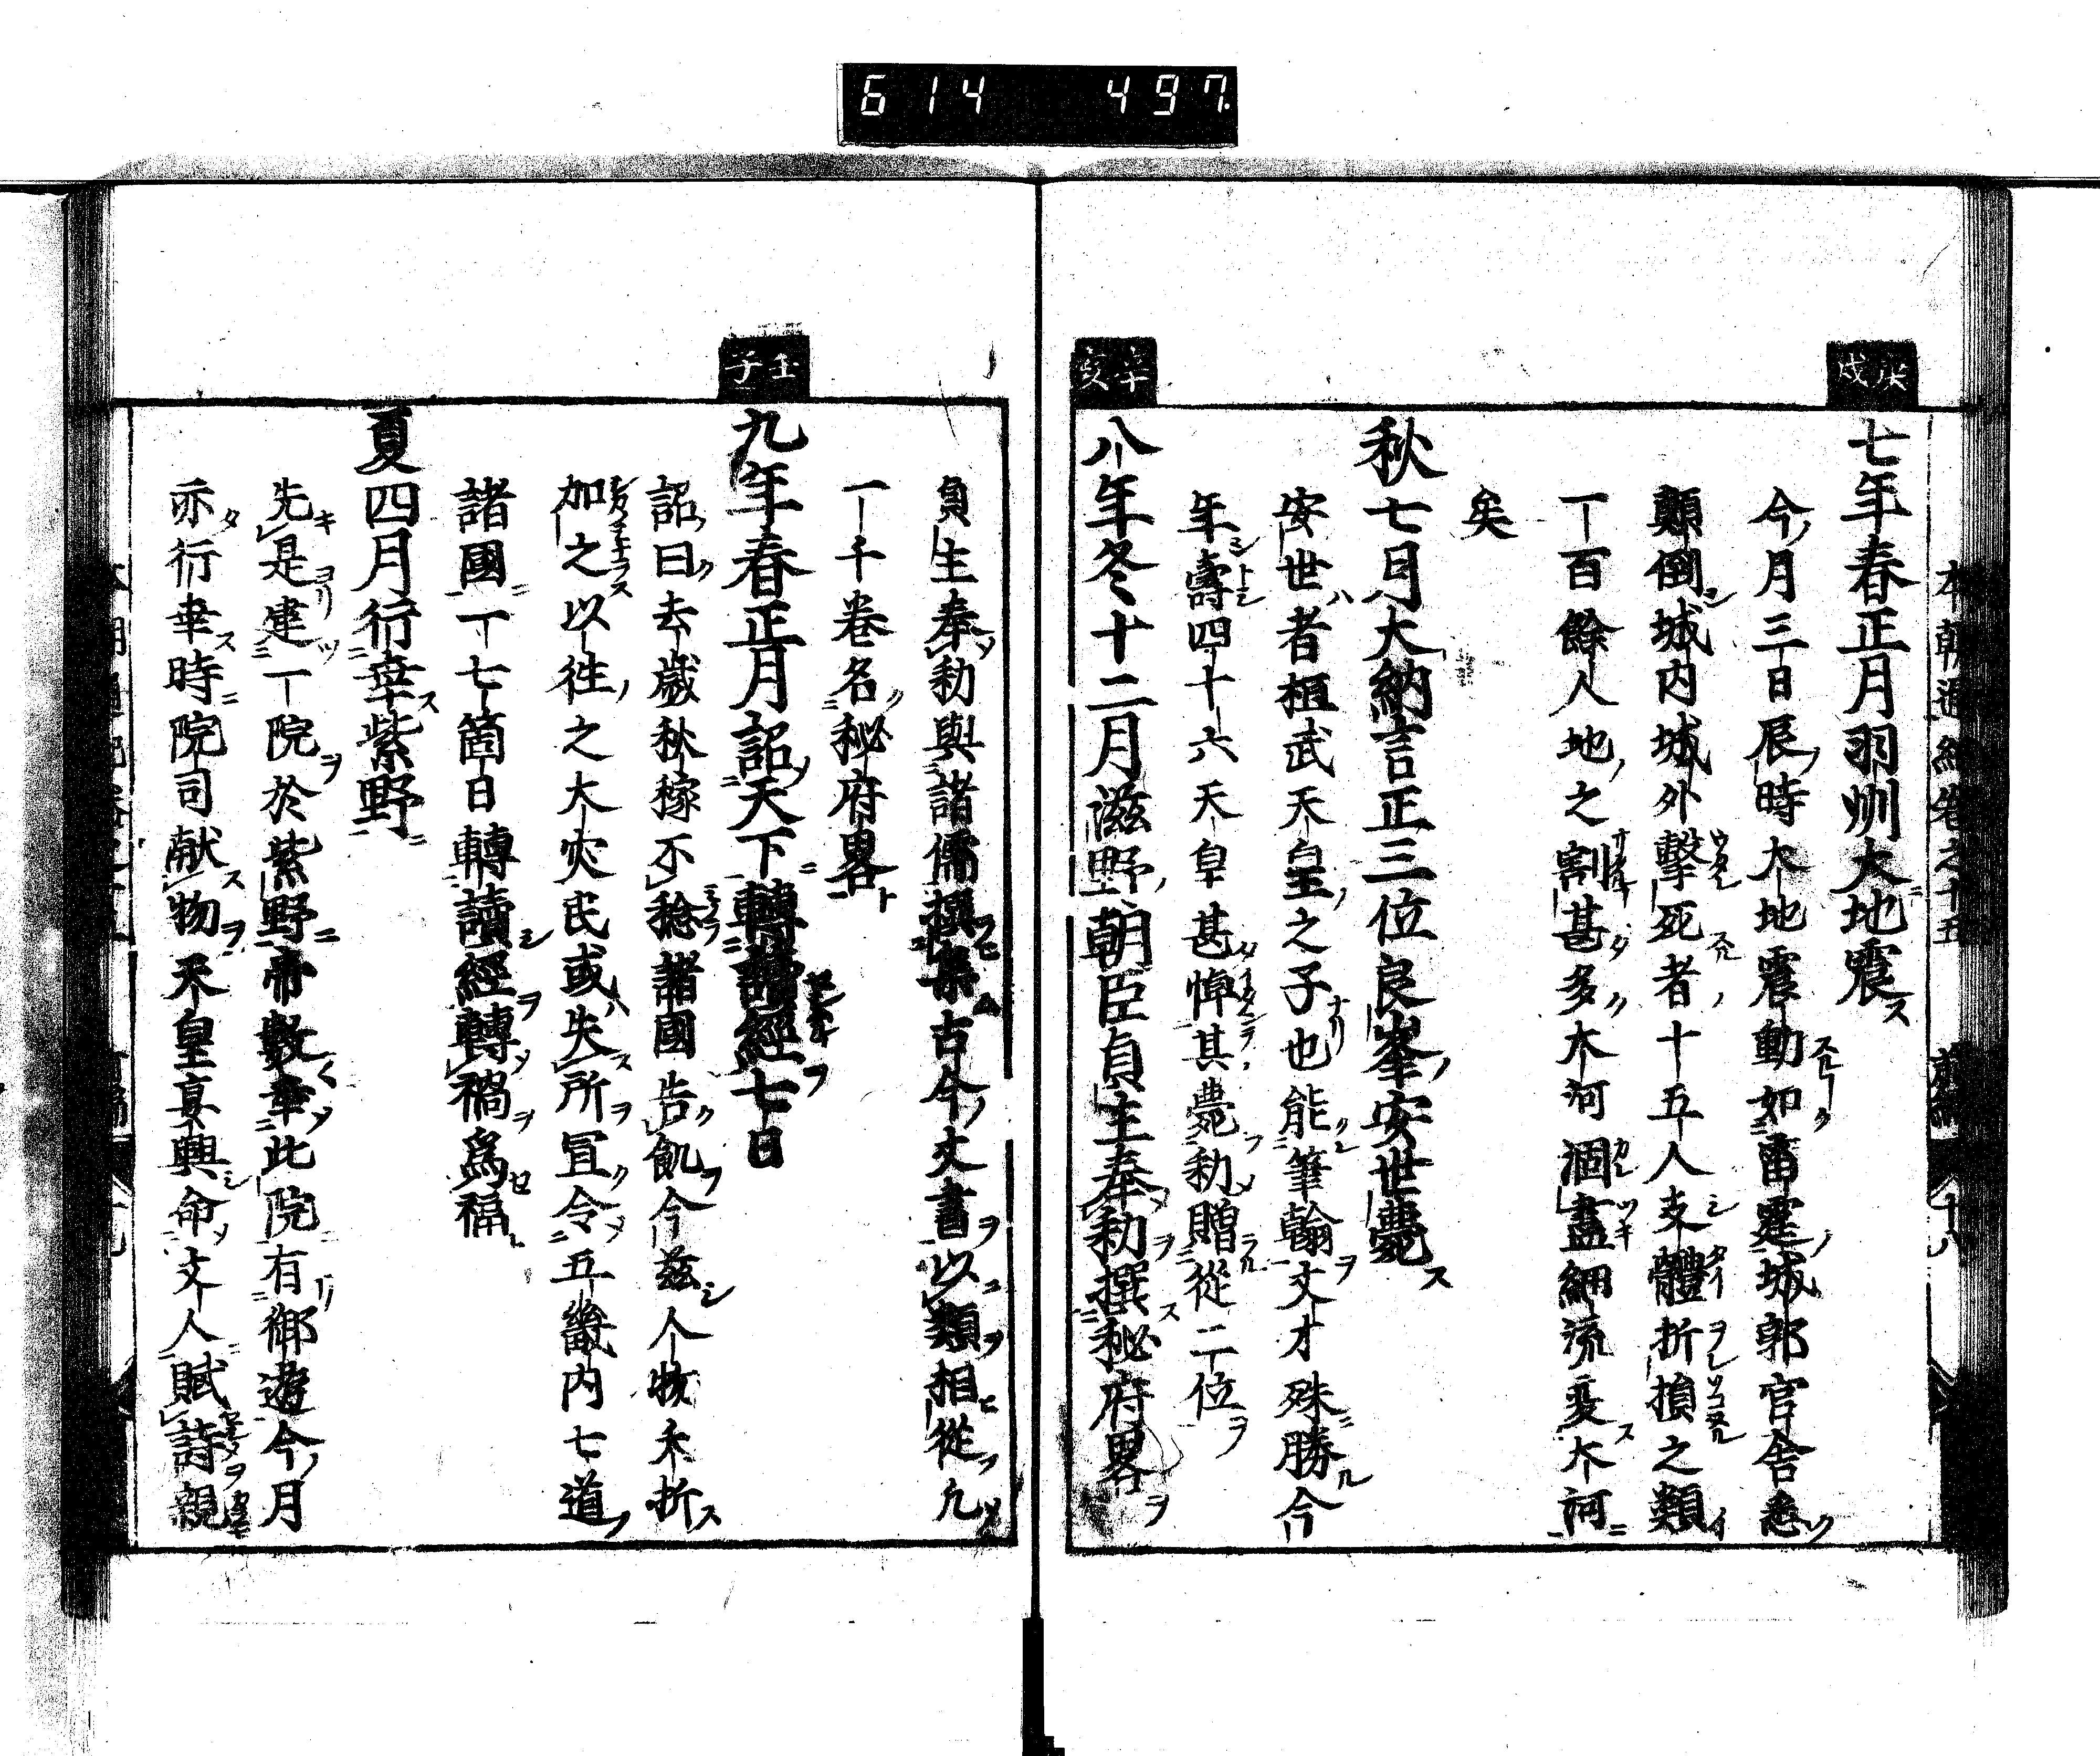 614 497
庚戌
七年春正月羽州大地震
今月三日辰時大地震動如雷霆城郭官舍悉
顛倒城內城外擊死者十五人支體折損之類
一百餘人地之割甚多大河涸盡細流変大河
矣
秋七月大納言正三位良峯安世薨
安世者桓武天皇之子也能筆翰文才殊勝今
年壽四十六天皇甚悼其薨勅贈從二位
辛亥
八年冬十二月滋野朝臣貞主奉勅撰秘府畧
貞主奉勅與諸儒撰集古今文書以類相從凢
一千卷名秘府畧
壬子
九年春正月詔天下轉讀經七日
詔曰去歲秋稼不稔諸國告飢今茲人物夭折
加之以徃之大灾民或失所冝令五畿內七道
諸國一七箇日轉讀經轉禍爲福
夏四月行幸紫野
先是建一院於紫野帝數幸此院有御遊今月
亦行幸時院司献物天皇宴興命文人賦詩親